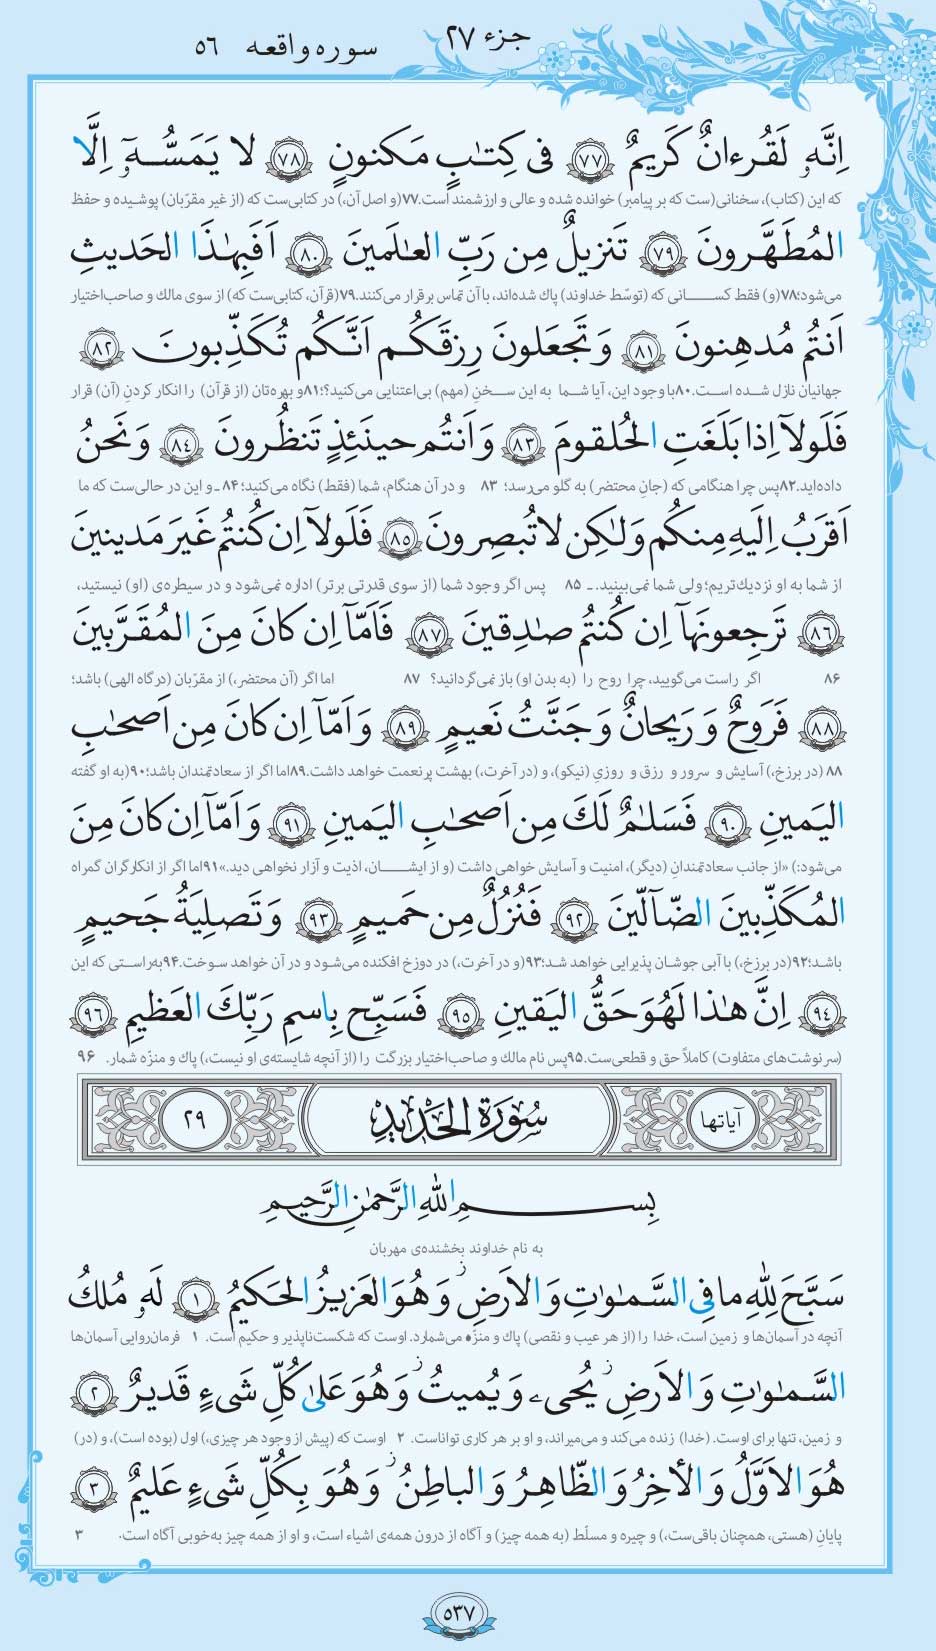 جزء ٢٧ سوره واقعه ٥٦
اِنَّهٗ لَقُرءانٌ كَريمٌ ﴿٧٧﴾ فى كِتٰبٍ مَكنونٍ ﴿٧٨﴾ لا يَمَسُّهٗٓ اِلَّا
که این (کتاب)، سخنانی(ست که بر پیامبر) خوانده شده و عالی و ارزشمند است.٧٧(و اصل آن،) در کتابی‌ست که (از غیر مقرّبان) پوشیده و حفظ
المُطَهَّرونَ ﴿٧٩﴾ تَنزيلٌ مِن رَبِّ العالَمينَ ﴿٨٠﴾ اَفَبِهٰذَا الحَديثِ
می‌شود؛٧٨(و) فقط کسانی که (توسّط خداوند) پاك شده‌اند، با آن تماس برقرار می‌کنند.٧٩(قرآن، کتابی‌ست که) از سوی مالك و صاحب‌اختیار
اَنتُم مُدهِنونَ ﴿٨١﴾ وَ تَجعَلونَ رِزقَكُم اَنَّكُم تُكَذِّبونَ ﴿٨٢﴾
جهانیان نازل شده است.٨٠با وجود این، آیا شما به این سخنِ (مهم) بی‌اعتنایی می‌کنید؟!٨١و بهره‌تان (از قرآن) را انکار کردنِ (آن) قرار
فَلَولاۤ اِذا بَلَغَتِ الحُلقومَ ﴿٨٣﴾ وَ اَنتُم حينَئِذٍ تَنظُرونَ ﴿٨٤﴾ وَ نَحنُ
داده‌اید.٨٢پس چرا هنگامی که (جانِ محتضر) به گلو می‌رسد؛ ٨٣ و در آن هنگام، شما (فقط) نگاه می‌کنید؛ ٨٤ ـ و این در حالی‌ست که ما
اَقرَبُ اِلَيهِ مِنكُم وَلٰكِن لا تُبصِرونَ ﴿٨٥﴾ فَلَولاۤ اِن كُنتُم غَيرَ مَدينينَ
از شما به او نزدیك‌تریم؛ ولی شما نمی‌بینید. ـ ٨٥ پس اگر وجود شما (از سوی قدرتی برتر) اداره نمی‌شود و در سیطره‌ی (او) نیستید،
﴿٨٦﴾ تَرجِعونَهاۤ اِن كُنتُم صٰدِقينَ ﴿٨٧﴾ فَاَمّاۤ اِن كانَ مِنَ المُقَرَّبينَ
٨٦ اگر راست می‌گویید، چرا روح را (به بدن او) باز نمی‌گردانید؟ ٨٧ اما اگر (آن محتضر،) از مقرّبان (درگاه الهی) باشد؛
﴿٨٨﴾ فَرَوحٌ وَ رَيحانٌ وَ جَنَّتُ نَعيمٍ ﴿٨٩﴾ وَ اَمّاۤ اِن كانَ مِن اَصحٰبِ
٨٨ (در برزخ،) آسایش و سرور و رزق و روزیِ (نیکو)، و (در آخرت،) بهشت پرنعمت خواهد داشت.٨٩اما اگر از سعادتمندان باشد؛٩٠(به او گفته
اليَمينِ ﴿٩٠﴾ فَسَلٰمٌ لَكَ مِن اَصحٰبِ اليَمينِ ﴿٩١﴾ وَ اَمّاۤ اِن كانَ مِنَ
می‌شود:) «از جانب سعادتمندانِ (دیگر)، امنیت و آسایش خواهی داشت (و از ایشان، اذیت و آزار نخواهی دید.»٩١اما اگر از انکارگران گمراه
المُكَذِّبينَ الضّاۤلّينَ ﴿٩٢﴾ فَنُزُلٌ مِن حَميمٍ ﴿٩٣﴾ وَ تَصلِيَةُ جَحيمٍ
باشد؛٩٢(در برزخ،) با آبی جوشان پذیرایی خواهد شد؛٩٣(و در آخرت،) در دوزخ افکنده می‌شود و در آن خواهد سوخت.٩٤به‌راستی که این
﴿٩٤﴾ اِنَّ هٰذا لَهُوَ حَقُّ اليَقينِ ﴿٩٥﴾ فَسَبِّح بِاسمِ رَبِّكَ العَظيمِ ﴿٩٦﴾
(سرنوشت‌های متفاوت) کاملاً حق و قطعی‌ست.٩٥پس نام مالك و صاحب‌اختیار بزرگت را (از آنچه شایسته‌ی او نیست،) پاك و منزّه شمار. ٩٦
آیاتها سُورَةُ الحَديدِ ٢٩
بِسمِ اللّٰهِ الرَّحمٰنِ الرَّحيمِ
به نام خداوند بخشنده‌ی مهربان
سَبَّحَ لِلّٰهِ ما فِى السَّمٰوٰتِ وَ الاَرضِ ز وَ هُوَ العَزيزُ الحَكيمُ ﴿١﴾ لَهٗ مُلكُ
آنچه در آسمان‌ها و زمین است، خدا را (از هر عیب و نقصی) پاك و منزّه می‌شمارد. اوست که شکست‌ناپذیر و حکیم است. ١ فرمان‌روایی آسمان‌ها
السَّمٰوٰتِ وَ الاَرضِ ز يُحيى وَ يُميتُ ز وَ هُوَ عَلىٰ كُلِّ شَىءٍ قَديرٌ ﴿٢﴾
و زمین، تنها برای اوست. (خدا) زنده می‌کند و می‌میراند، و او بر هر کاری تواناست. ٢ اوست که (پیش از وجود هر چیزی،) اول (بوده است)، و (در)
هُوَ الاَوَّلُ وَ الأخِرُ وَ الظّاهِرُ وَ الباطِنُ ز وَ هُوَ بِكُلِّ شَىءٍ عَليمٌ ﴿٣﴾
پایانِ (هستی، همچنان باقی‌ست،) و چیره و مسلّط (به همه چیز) و آگاه از درون همه‌ی اشیاء است، و او از همه چیز به‌خوبی آگاه است. ٣
٥٣٧